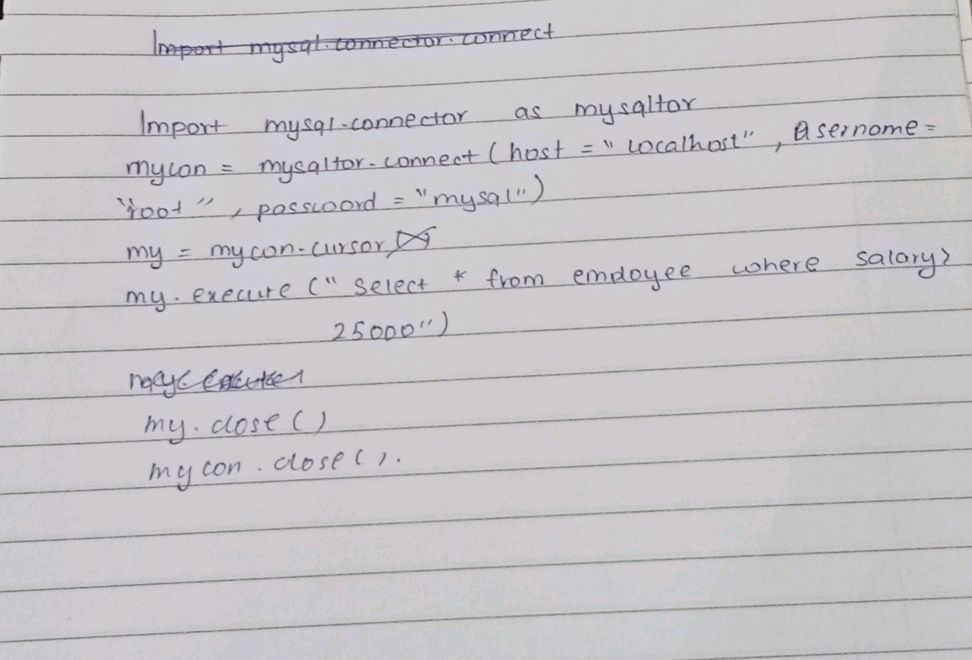 Import mysql.connector.connect
Import mysql.connector as mysqltor
mycon = mysqltor.connect (host = "localhost", username =
"root", password = "mysql")
my = mycon.cursor
my.execute (" Select * from emdoyee where salary>
25000")
my.close ()
mycon.close ().